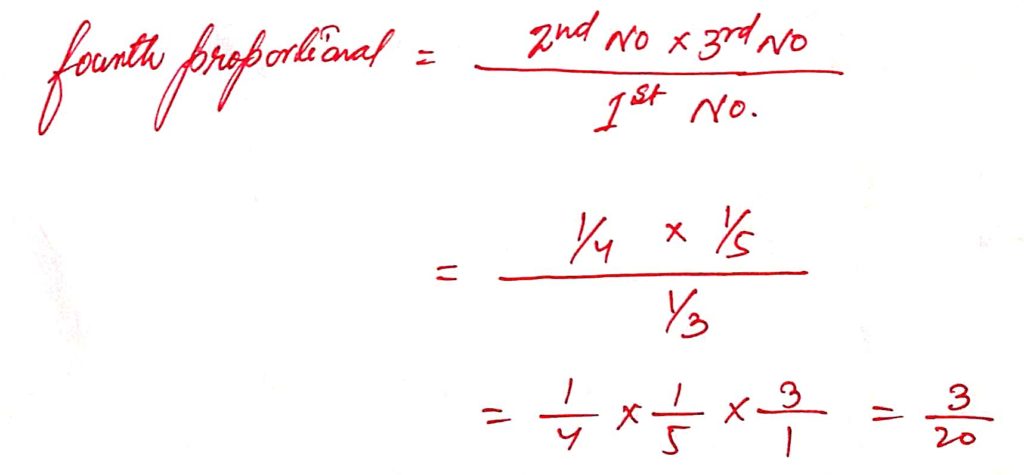 fourth proportional = 2nd No x 3rd No / 1st No.
= 1/4 x 1/5 / 1/3
= 1/4 x 1/5 x 3/1 = 3/20